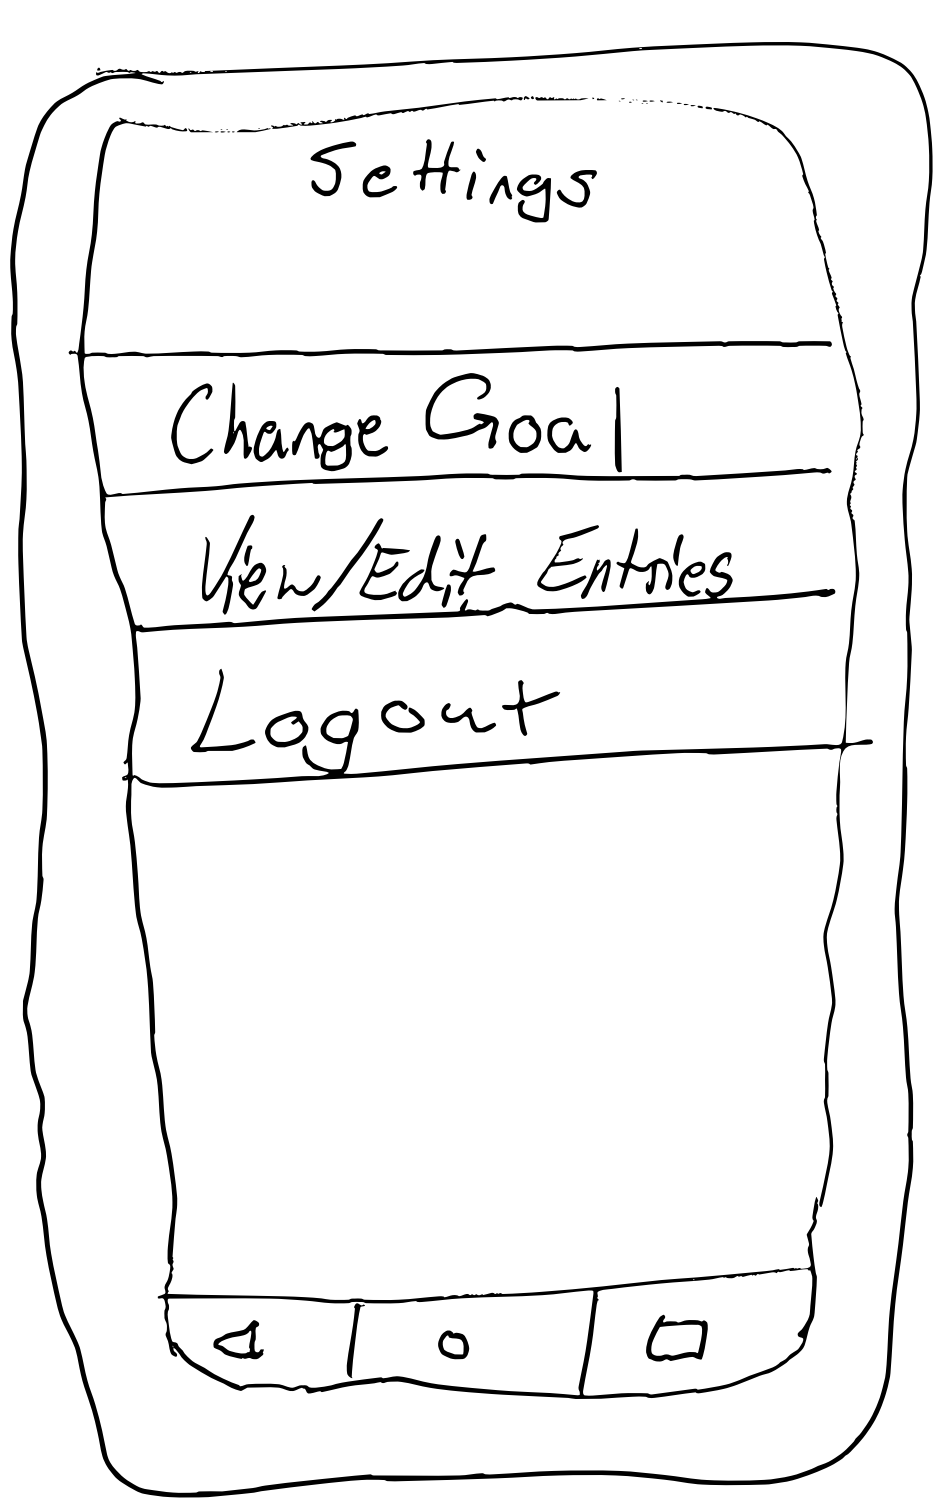 Settings
Change Goal
View/Edit Entries
Logout